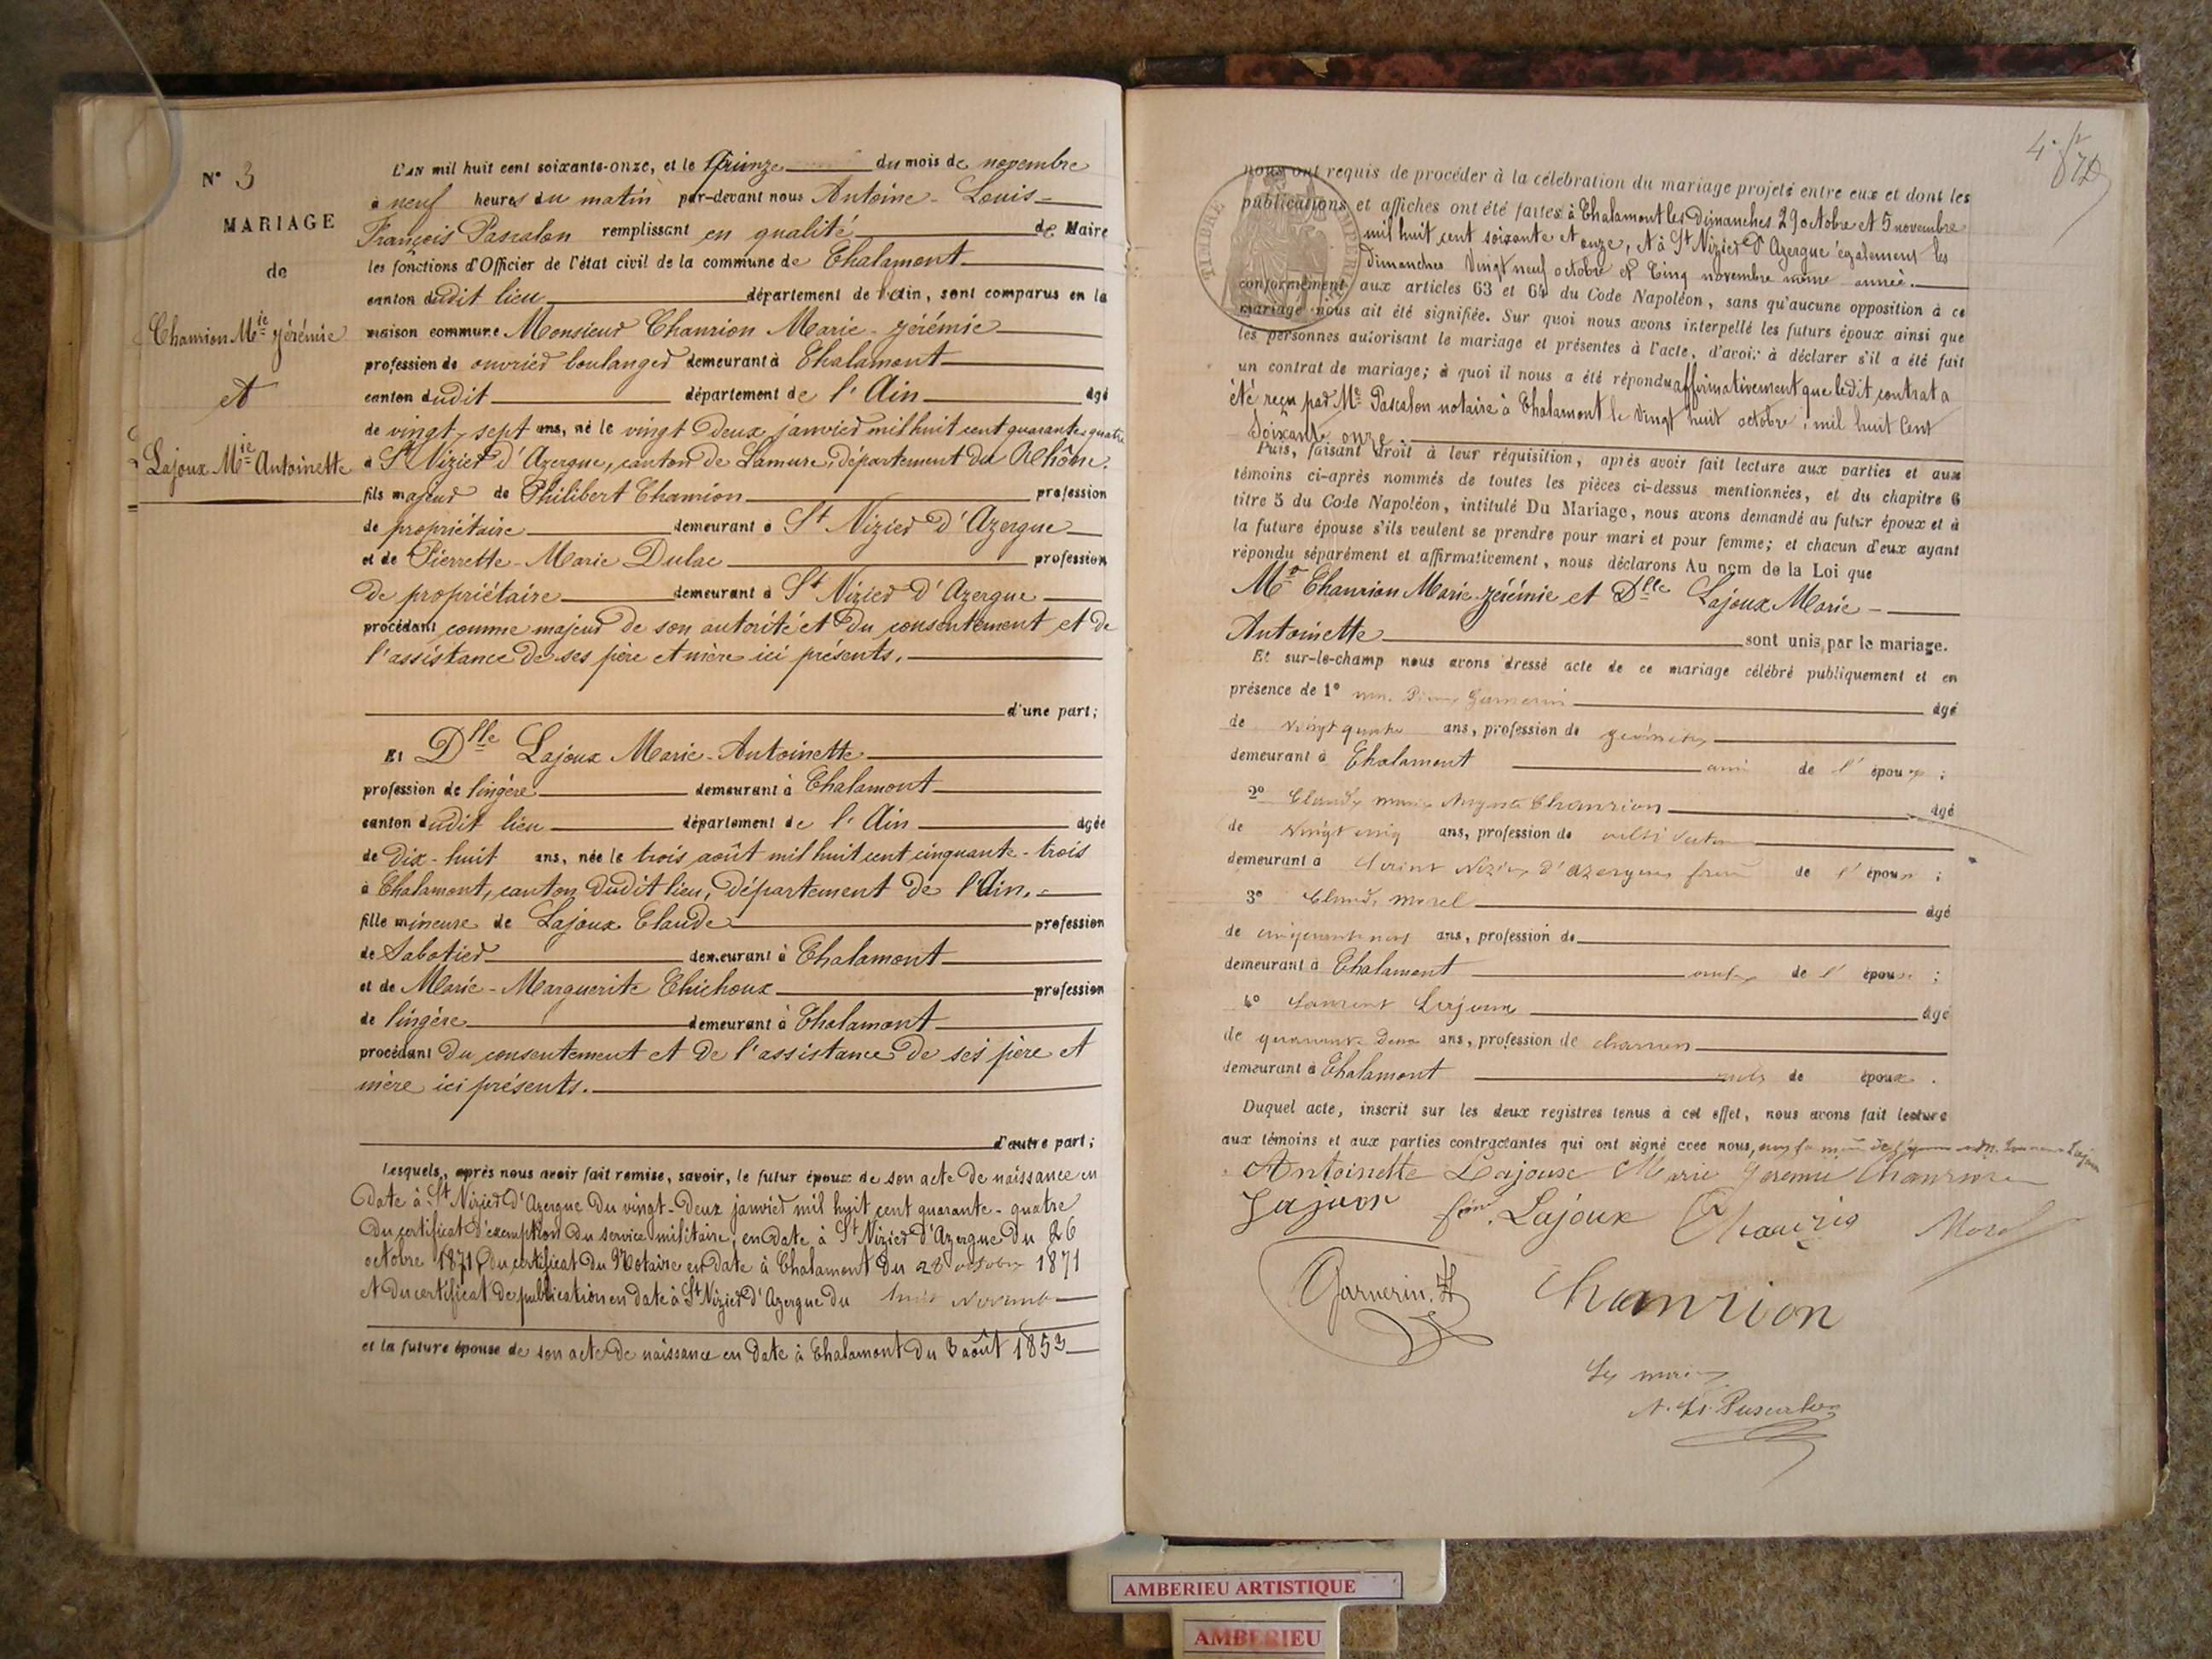 N° 3
MARIAGE
de
Chanrion Mie Jérémie
et
Lajoux Mie Antoinette
L'AN mil huit cent soixante-onze, et le Quinze du mois de novembre
à neuf heures du matin par-devant nous Antoine-Louis-
François Pascalon remplissant en qualité de Maire
les fonctions d'Officier de l'état civil de la commune de Chalamont
canton dudit lieu département de l'Ain, sont comparus en la
maison commune Monsieur Chanrion Marie-Jérémie
profession de ouvrier boulanger demeurant à Chalamont
canton dudit département de l'Ain âgé
de vingt-sept ans, né le vingt Deux janvier mil huit cent quarante quatre
à St Nizier d'Azergue, canton de Lamure, département du Rhône.
fils majeur de Philibert Chanrion profession
de propriétaire demeurant à St Nizier d'Azergue
et de Pierrette-Marie Dulac profession
de propriétaire demeurant à St Nizier d'Azergue
procédant comme majeur de son autorité et du consentement et de
l'assistance de ses père et mère ici présents.
d'une part;
Et Dlle Lajoux Marie-Antoinette
profession de lingère demeurant à Chalamont
canton dudit lieu département de l'Ain âgée
de Dix-huit ans, née le trois août mil huit cent cinquante-trois
à Chalamont, canton dudit lieu, département de l'Ain.
fille mineure de Lajoux Claude profession
de Sabotier demeurant à Chalamont
et de Marie-Marguerite Chichoux profession
de lingère demeurant à Chalamont
procédant du consentement et de l'assistance de ses père et
mère ici présents.
d'autre part;
Lesquels, après nous avoir fait remise, savoir, le futur époux de son acte de naissance en
date à St Nizier d'Azergue du vingt-Deux janvier mil huit cent quarante-quatre
du certificat d'exemption du service militaire, en date à St Nizier d'Azergue du 26
octobre 1871, du certificat du Notaire en date à Chalamont du 28 octobre 1871
et du certificat de publication en date à St Nizier d'Azergue du novembre
et la future épouse de son acte de naissance en date à Chalamont du 3 août 1853
nous ont requis de procéder à la célébration du mariage projeté entre eux et dont les
publications et affiches ont été faites à Chalamont les Dimanches 29 octobre et 5 novembre
mil huit cent soixante et onze, et à St Nizier d'Azergue également les
Dimanches vingt neuf octobre et Cinq novembre même année.
conformément aux articles 63 et 64 du Code Napoléon, sans qu'aucune opposition à ce
mariage nous ait été signifiée. Sur quoi nous avons interpellé les futurs époux ainsi que
les personnes autorisant le mariage et présentes à l'acte, d'avoir à déclarer s'il a été fait
un contrat de mariage; à quoi il nous a été répondu affirmativement que ledit contrat a
été reçu par Me Pascalon notaire à Chalamont le vingt huit octobre mil huit Cent
Soixante onze.
Puis, faisant droit à leur réquisition, après avoir fait lecture aux parties et aux
témoins ci-après nommés de toutes les pièces ci-dessus mentionnées, et du chapitre 6
titre 5 du Code Napoléon, intitulé Du Mariage, nous avons demandé au futur époux et à
la future épouse s'ils veulent se prendre pour mari et pour femme; et chacun d'eux ayant
répondu séparément et affirmativement, nous déclarons Au nom de la Loi que
Mr Chanrion Marie-Jérémie et Dlle Lajoux Marie-
Antoinette sont unis par le mariage.
Et sur-le-champ nous avons dressé acte de ce mariage célébré publiquement et en
présence de 1° Garnerin âgé
de vingt quatre ans, profession de géomètre
demeurant à Chalamont ami de l'époux;
2° Claude Marie Auguste Chanrion âgé
de vingt cinq ans, profession de cultivateur
demeurant à Saint Nizier d'Azergues frère de l'époux;
3° Claude Morel âgé
de cinquante neuf ans, profession de
demeurant à Chalamont oncle de l'épouse;
4° Laurent Lajoux âgé
de quarante Deux ans, profession de charron
demeurant à Chalamont oncle de épouse.
Duquel acte, inscrit sur les deux registres tenus à cet effet, nous avons fait lecture
aux témoins et aux parties contractantes qui ont signé avec nous,
Antoinette Lajoux Marie Jeremie Chanrion
Lajoux Lajoux Morel
Garnerin Chanrion
Le maire
A. L. Pascalon
AMBERIEU ARTISTIQUE
AMBERIEU